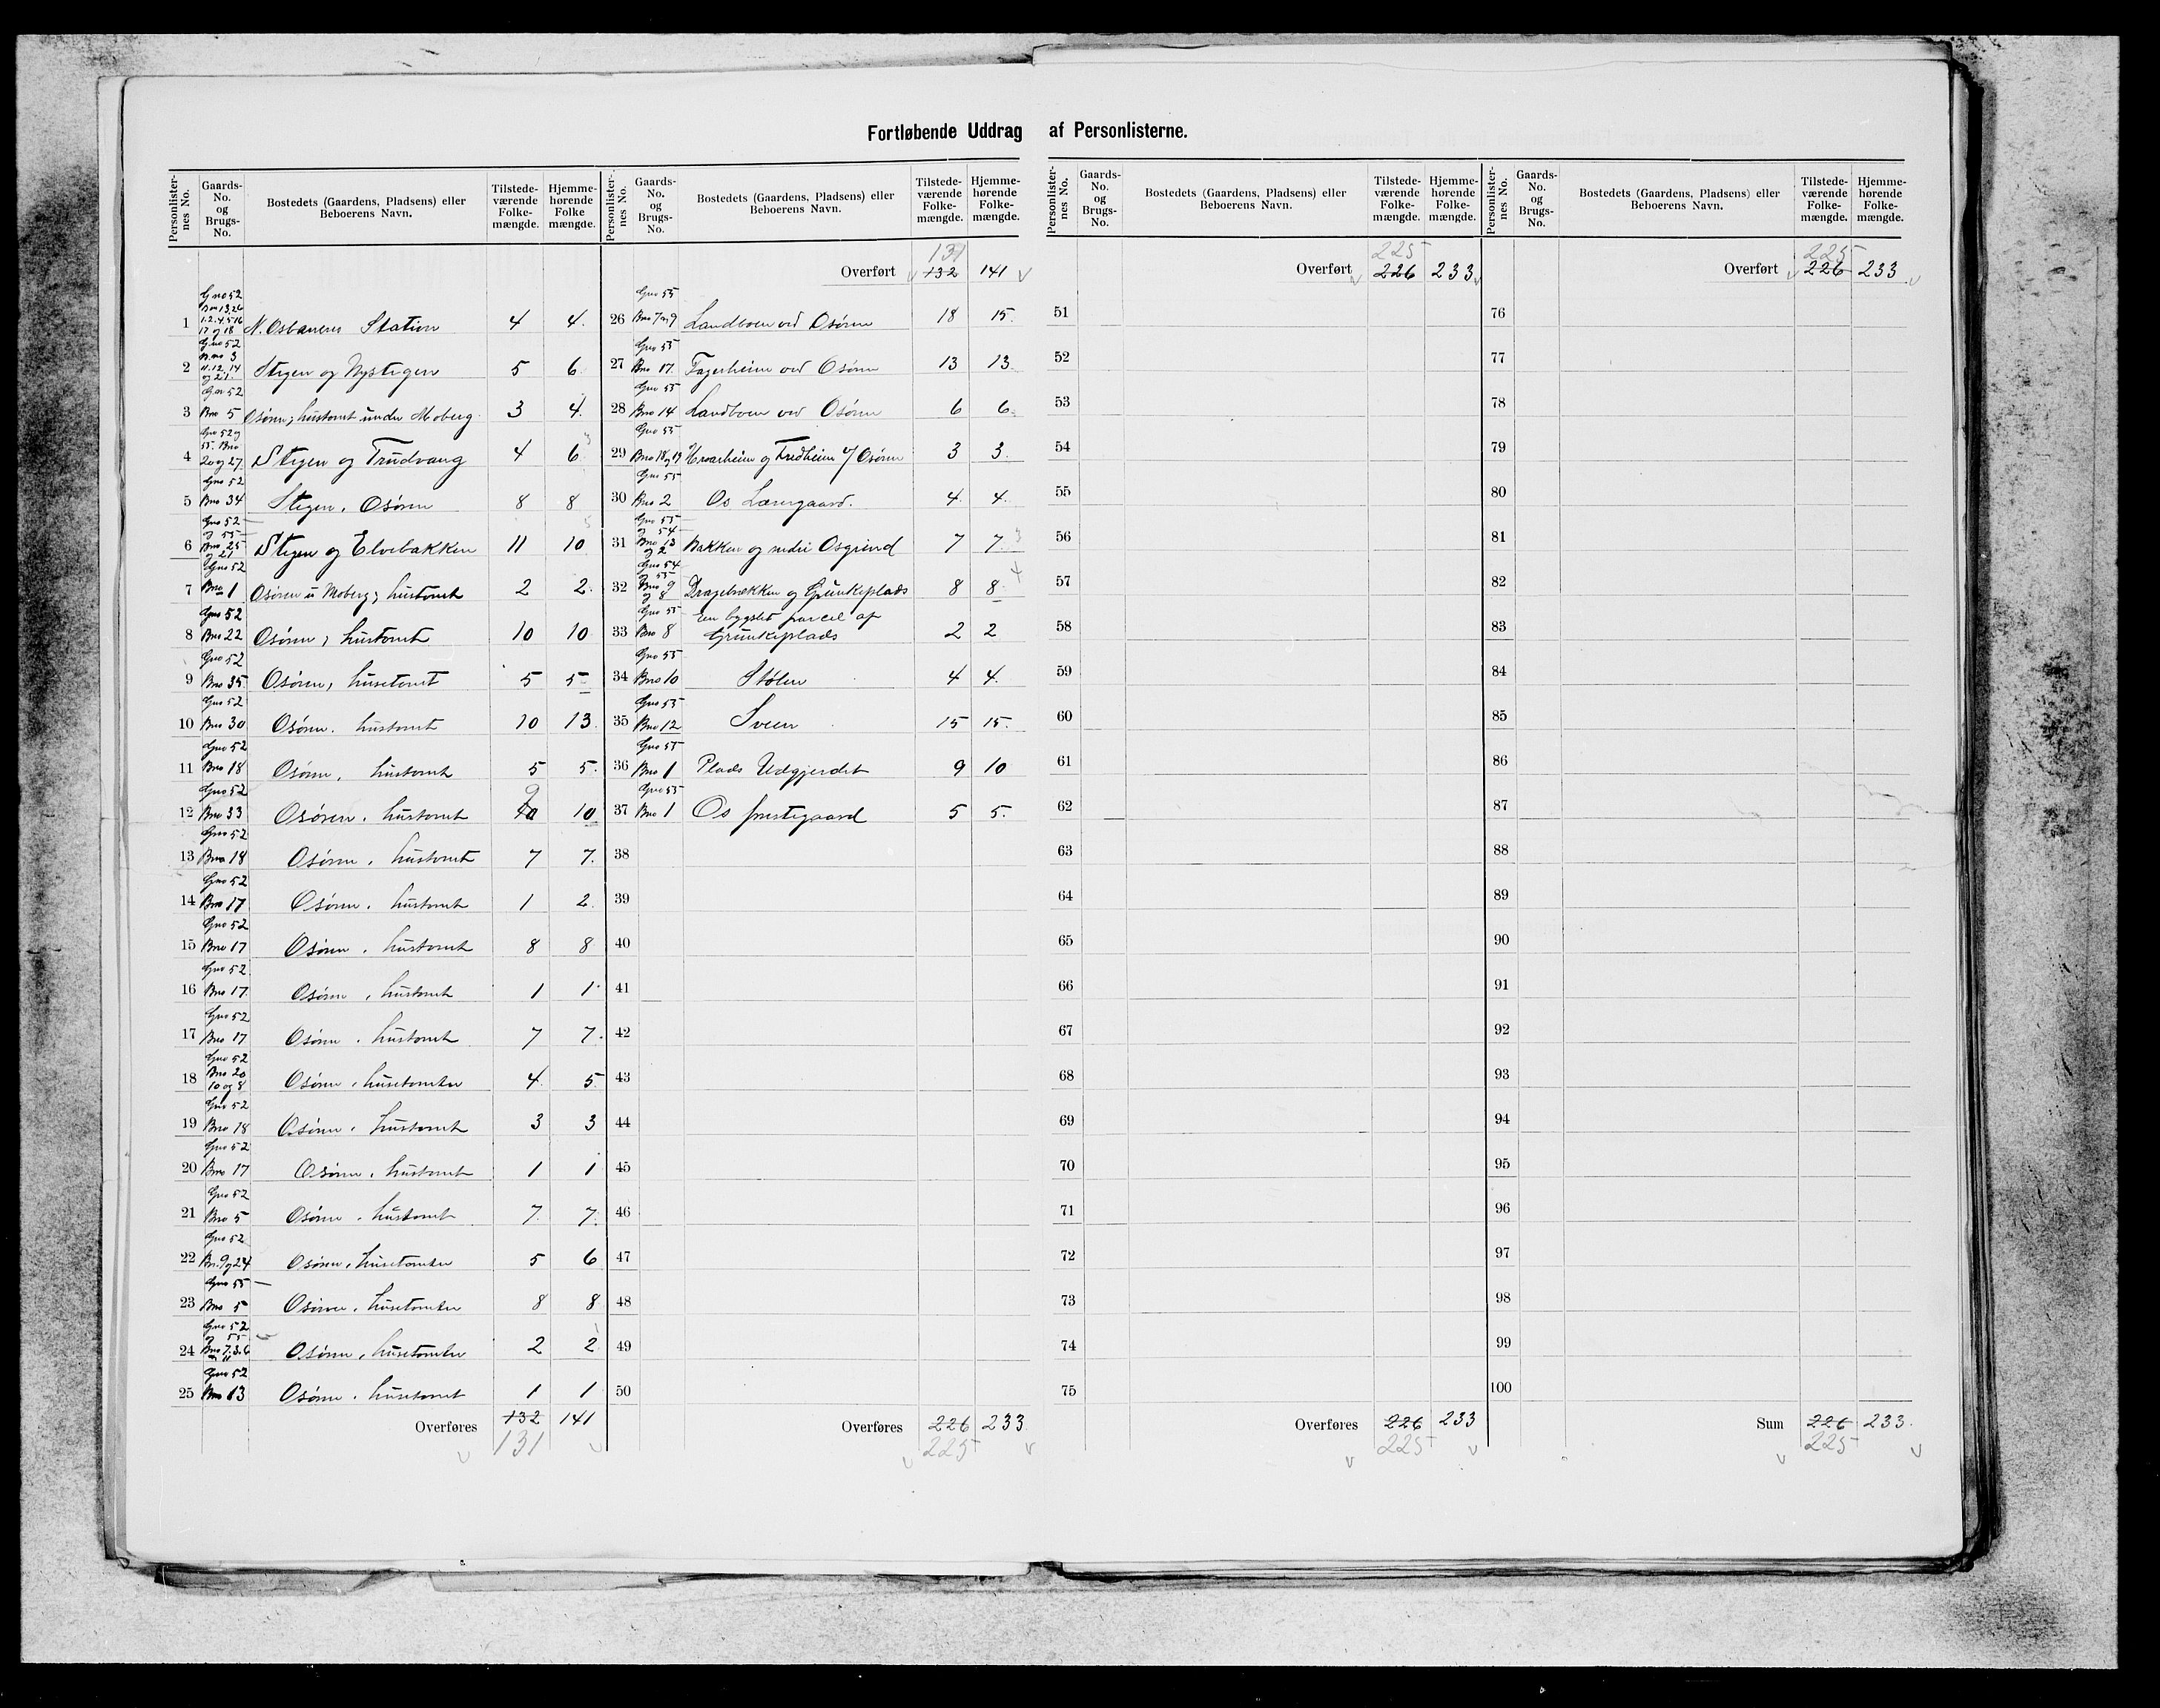 Fortløbende Uddrag af Personlisterne.
Personlister-nes No. | Gaards-No. og Brugs-No. | Bostedets (Gaardens, Pladsens) eller Beboerens Navn. | Tilstede-værende Folke-mængde. | Hjemme-hørende Folke mængde.
1 | Gno 52 | N. Osbanens Station | 4 | 4.
2 | Gno 52 Bno 3 11. 12. 14 og 21. | Stegen og Nystegen | 5 | 6
3 | Gno 52 Bno 5 | Osøren, hustomt under Moberg. | 3 | 4.
4 | Gno 52 og 55. Bno 20 og 27 | Stegen og Trudvang | 4 | 6
5 | Gno 52 Bno 34 | Stegen. Osøren | 8 | 8
6 | Gno 52 og 55 Bno 25 og 21 | Stegen og Elvebakken | 11 | 10
7 | Gno 52 Bno 1 | Osøren u Moberg, hustomt | 2 | 2.
8 | Gno 52 Bno 22 | Osøren, hustomt | 10 | 10
9 | Gno 52 Bno 35 | Osøren, husetomt | 5 | 5
10 | Gno 52 Bno 30 | Osøren. hustomt | 10 | 13.
11 | Gno 52 Bno 18 | Osøren. hustomt | 5 | 5.
12 | Gno 52 Bno 33 | Osøren. hustomt | 9 10 | 10
13 | Gno 52 Bno 18 | Osøren. hustomt | 7 | 7.
14 | Gno 52 Bno 17 | Osøren. hustomt | 1 | 2.
15 | Gno 52 Bno 17 | Osøren. hustomt | 8 | 8
16 | Gno 52 Bno 17 | Osøren. hustomt | 1 | 1
17 | Gno 52 Bno 17 | Osøren. hustomt | 7 | 7.
18 | Gno 52 Bno 20 10 og 8 | Osøren, husetomter | 4 | 5
19 | Gno 52 Bno 18 | Osøren. hustomt | 3 | 3
20 | Gno 52 Bno 17 | Osøren. hustomt | 1 | 1
21 | Gno 52 Bno 5 | Osøren. hustomt | 7. | 7.
22 | Gno 52 Bn. 9 og 24 | Osøren, husetomter | 5 | 6
23 | Gno 55 Bno 5 | Osøren. husetomter | 8 | 8
24 | Gno 52 og 55 Bno 7.3.6 | Osøren, husetomter | 2 | 2
25 | Gno 52 Bno 13 | Osøren. husetomt | 1 | 1
Overføres | 132 | 141
131
Personlister-nes No. | Gaards-No. og Brugs-No. | Bostedets (Gaardens, Pladsens) eller Beboerens Navn. | Tilstede-værende Folke-mængde. | Hjemme-hørende Folke-mængde.
131
Overført | 132 | 141
26 | Gno 55 Bno 7 og 9 | Landboen ved Osøren | 18 | 15.
27 | Gno 55 Bno 17. | Fagerheim ved Osøren | 13 | 13.
28 | Gno 55 Bno 14 | Landboen ved Osøren | 6 | 6.
29 | Gno 55 Bno 18 og 19 | Hroarheim og Fredheim v/ Osøren | 3 | 3.
30 | Gno 55 Bno 2 | Os Lænsgaard. | 4 | 4.
31 | Gno 55 og 54 Bno 13 og 2 | Bakken og nedre Osgrind | 7 | 7. 3
32 | Gno 54 og 55 Bno 9 og 8 | Dragebakken og Grunkeplads | 8 | 8. 4
33 | Gno 55 Bno 8 | En bygslet parcel af Grunkeplads | 2 | 2
34 | Gno 55 Bno 10 | Stølen | 4 | 4.
35 | Gno 55 Bno 12 | Sveen | 15 | 15.
36 | Gno 55 Bno 1 | Plads Udgjerdet | 9 | 10
37 | Gno 55 Bno 1 | Os prestegaard | 5 | 5.
38
39
40
41
42
43
44
45
46
47
48
49
50
Overføres | 226 | 233
225
Personlister-nes No. | Gaards-No. og Brugs-No. | Bostedets (Gaardens, Pladsens) eller Beboerens Navn. | Tilstede-værende Folke-mængde. | Hjemme-hørende Folke-mængde.
225
Overført | 226 | 233
51
52
53
54
55
56
57
58
59
60
61
62
63
64
65
66
67
68
69
70
71
72
73
74
75
Overføres | 226 | 233
225
Personlister-nes No. | Gaards-No. og Brugs-No. | Bostedets (Gaardens, Pladsens) eller Beboerens Navn. | Tilstede-værende Folke-mængde. | Hjemme-hørende Folke-mængde.
225
Overført | 226 | 233
76
77
78
79
80
81
82
83
84
85
86
87
88
89
90
91
92
93
94
95
96
97
98
99
100
Sum | 226 | 233.
225